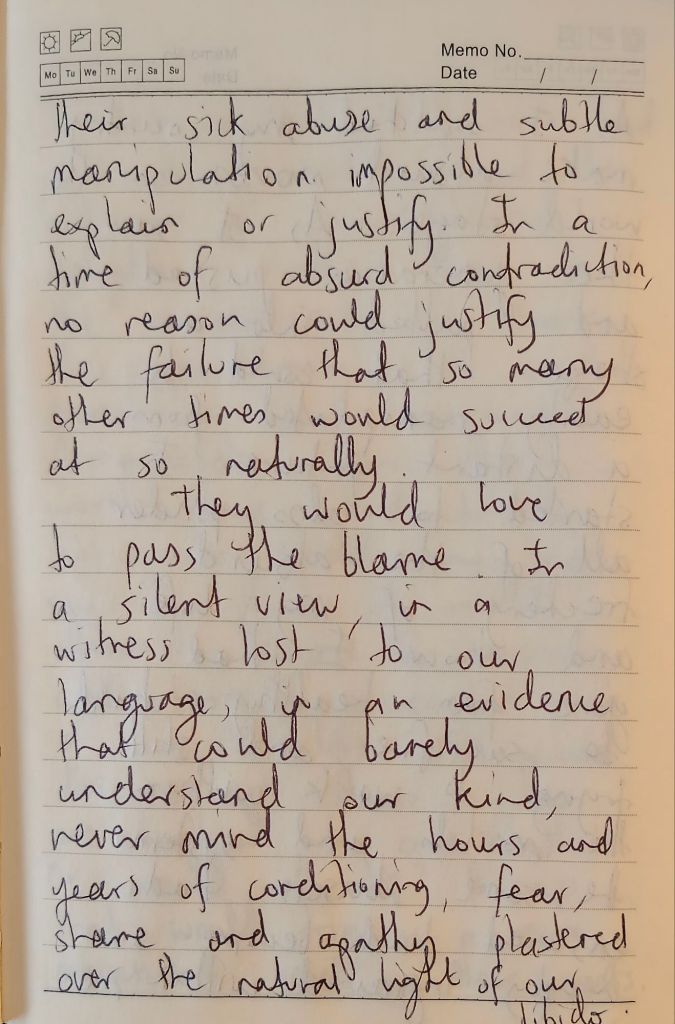 Memo No.
Mo Tu We Th Fr Sa Su
Date / /
Their sick abuse and subtle
manipulation impossible to
explain or justify. In a
time of absurd contradiction,
no reason could justify
the failure that so many
other times would succeed
at so naturally.
They would love
to pass the blame. In
a silent view, in a
witness lost to our
language, in an evidence
that could barely
understand our kind,
never mind the hours and
years of conditioning, fear,
shame and apathy plastered
over the natural light of our
libido.